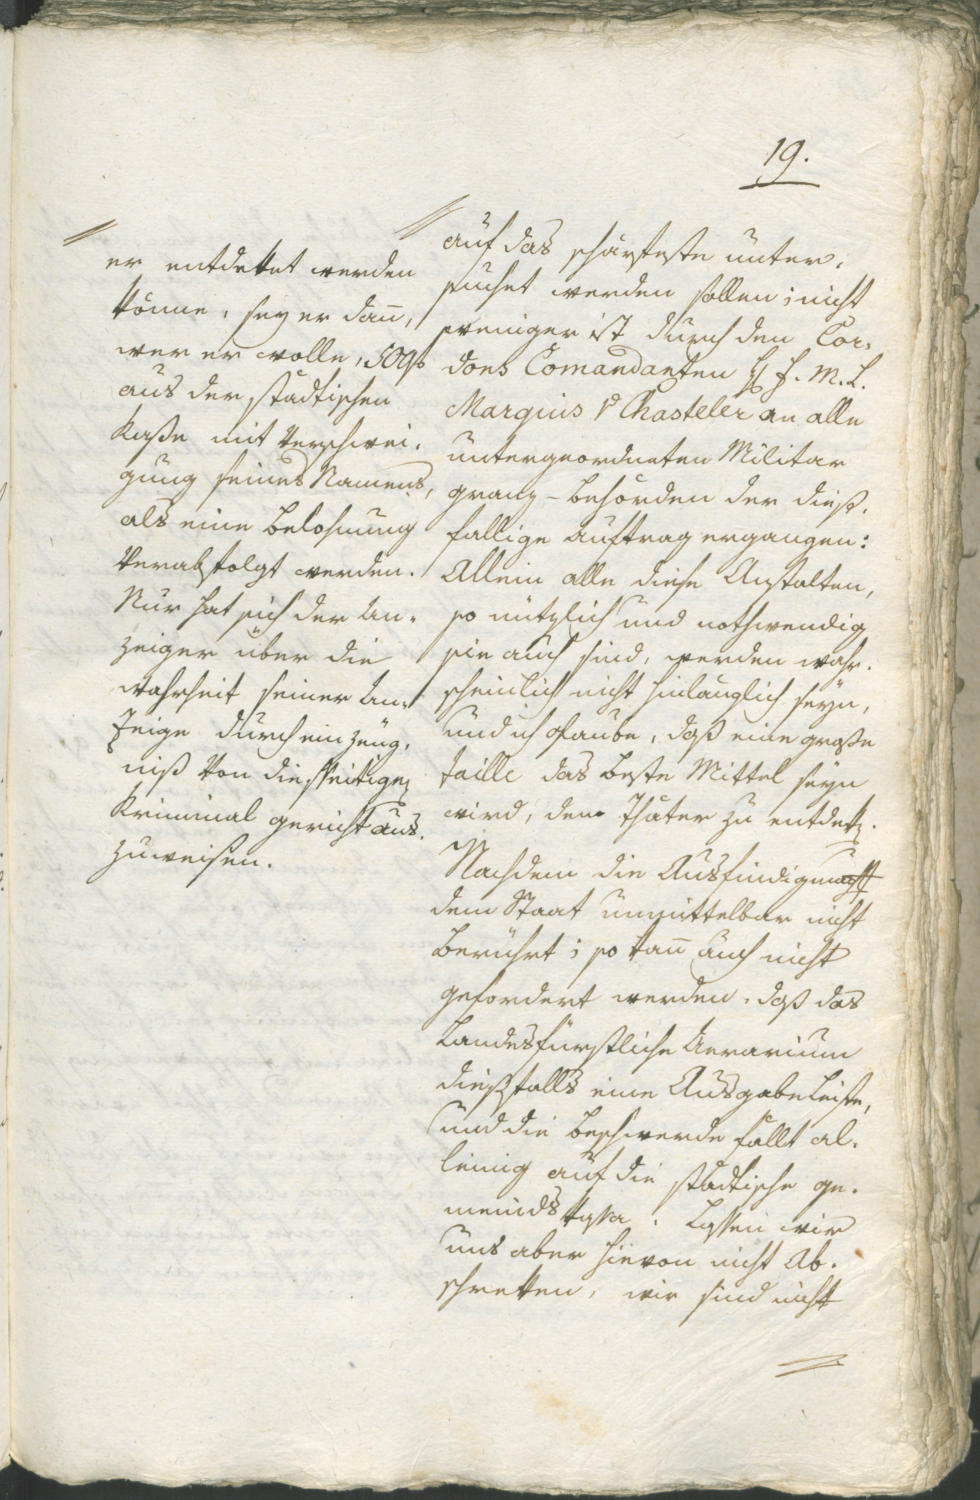 19.
er entdeket werden
könne, sey er dan̄,
wer er wolle, 50 
aus der städtischen
Kaße mit Verschwei,
gung seines Namens,
als eine Belohnung
Verabfolgt werden.
Nur hat sich der An,
zeiger über die
Wahrheit seiner An,
zeige durch ein Zeüg,
niß Von diesseitigen
Kriminal gericht aus.
zuweisen.
auf das schärfeste unter,
suchet werden sollen; nicht
weniger ist durch den Cor,
dons Comandanten H. F. M. L.
Marquis v. Chasteler an alle
untergeordneten Militar
granz-Behörden der dieß,
fallige Auftrag ergangen:
Allein alle diese Anstalten,
so nützlich und nothwendig
sie auch sind, werden wahr,
scheinlich nicht hinlänglich seyn,
und ich glaube, daß eine große
taille das beste Mittel seyn
wird, den Thäter zu entdek.
Nachdem die Ausfindigmach
dem Staat unmittelbar nicht
berührt; so kan̄ auch nicht
gefordert werden, daß das
Landesfürstliche Aerarium
dießfalls eine Ausgabe leiste,
und die Beschwerde fallt al,
leinig auf die städtische ge,
meinds Kassa. Lassen wir
uns aber hievon nicht Ab,
schreken, wir sind nicht